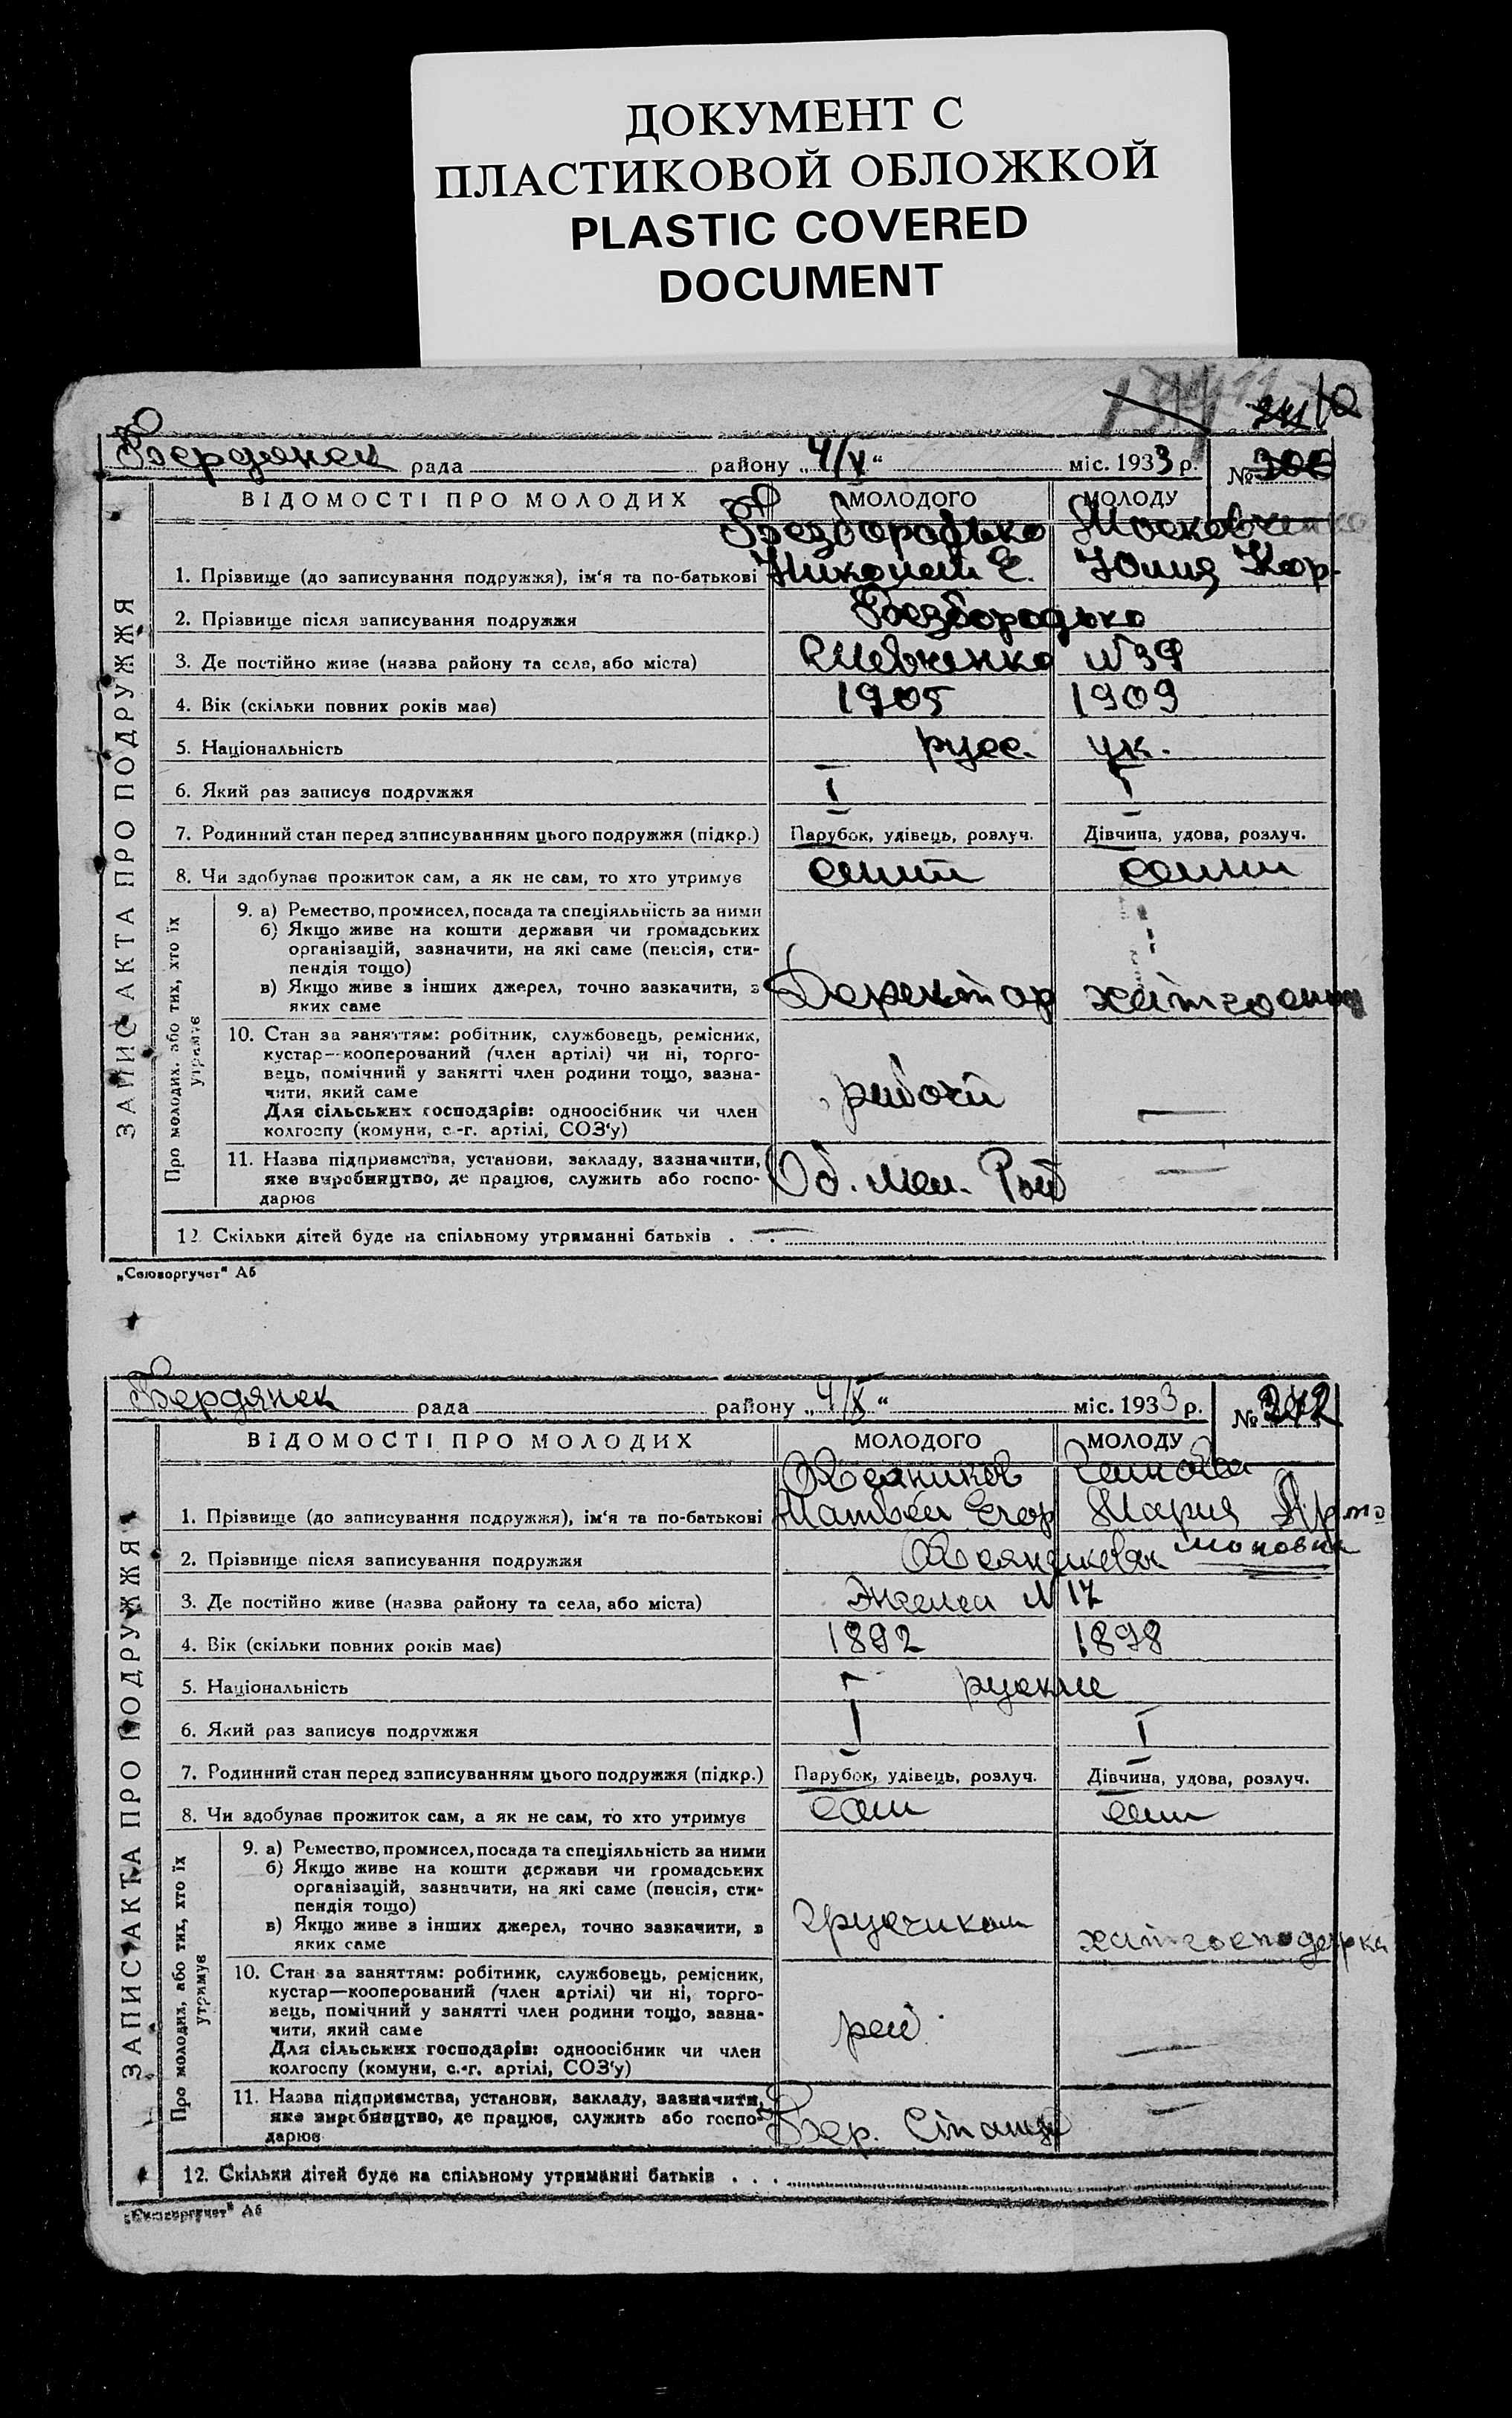 ДОКУМЕНТ С
ПЛАСТИКОВОЙ ОБЛОЖКОЙ
PLASTIC COVERED
DOCUMENT
Бердянск рада району „4/X“ міс. 1933 р. №
ВІДОМОСТІ ПРО МОЛОДИХ МОЛОДОГО МОЛОДУ
Безбородько Московченко
1. Прізвище (до записування подружжя), ім‘я та по-батькові Николай Е. Юлия Кор.
2. Прізвище після записування подружжя Безбородько
3. Де постійно живе (назва району та села, або міста) Шевченко №39
4. Вік (скільки повних років має) 1905 1909
5. Національність русс. ук.
6. Який раз записує подружжя I I
7. Родинний стан перед записуванням цього подружжя (підкр.) Парубок, удівець, розлуч. Дівчина, удова, розлуч.
8. Чи здобував прожиток сам, а як не сам, то хто утримує
9. а) Ремество, промисел, посада та спеціяльність за ними
б) Якщо живе на кошти держави чи громадських
організацій, зазначити, на які саме (пенсія, сти-
пендія тощо)
в) Якщо живе з інших джерел, точно зазкачити, з
яких саме
10. Стан за заняттям: робітник, службовець, ремісник,
кустар—кооперований (член артілі) чи ні, торго-
вець, помічний у занятті член родини тощо, зазна-
чити, який саме рабочи —
Для сільських господарів: одноосібник чи член
колгоспу (комуни, с.-г. артілі, СОЗ‘у)
11. Назва підприємства, установи, закладу, зазначити,
яке виробництво, де працює, служить або госпо-
дарює
12. Скільки дітей буде на спільному утриманні батьків . —
ЗАПИС АКТА ПРО ПОДРУЖЖЯ
Про молодих, або тих, хто їх
утримує
„Союзоргучет“ Аб
Бердянск рада району „4/X“ міс. 1933 р. № 242
ВІДОМОСТІ ПРО МОЛОДИХ МОЛОДОГО МОЛОДУ
1. Прізвище (до записування подружжя), ім‘я та по-батькові Матвей Егор Мария Арта
2. Прізвище після записування подружжя моновна
3. Де постійно живе (назва району та села, або міста) Энгельса № 17
4. Вік (скільки повних років має) 1892 1898
5. Національність руские
6. Який раз записує подружжя I I
7. Родинний стан перед записуванням цього подружжя (підкр.) Парубок, удівець, розлуч. Дівчина, удова, розлуч.
8. Чи здобував прожиток сам, а як не сам, то хто утримує сам сам
9. а) Ремество, промисел, посада та спеціяльність за ними
б) Якщо живе на кошти держави чи громадських
організацій, зазначити, на які саме (пенсія, сти-
пендія тощо)
в) Якщо живе з інших джерел, точно зазкачити, з грузчиком хатгосподарка
яких саме
10. Стан за заняттям: робітник, службовець, ремісник,
кустар—кооперований (член артілі) чи ні, торго-
вець, помічний у занятті член родини тощо, зазна-
чити, який саме раб. —
Для сільських господарів: одноосібник чи член
колгоспу (комуни, с.-г. артілі, СОЗ‘у)
11. Назва підприємства, установи, закладу, зазначити,
яке виробництво, де працює, служить або госпо- Бер. Станция —
дарює
12. Скільки дітей буде на спільному утриманні батьків . . .
ЗАПИС АКТА ПРО ПОДРУЖЖЯ
Про молодих, або тих, хто їх
утримує
„Союзоргучет“ Аб